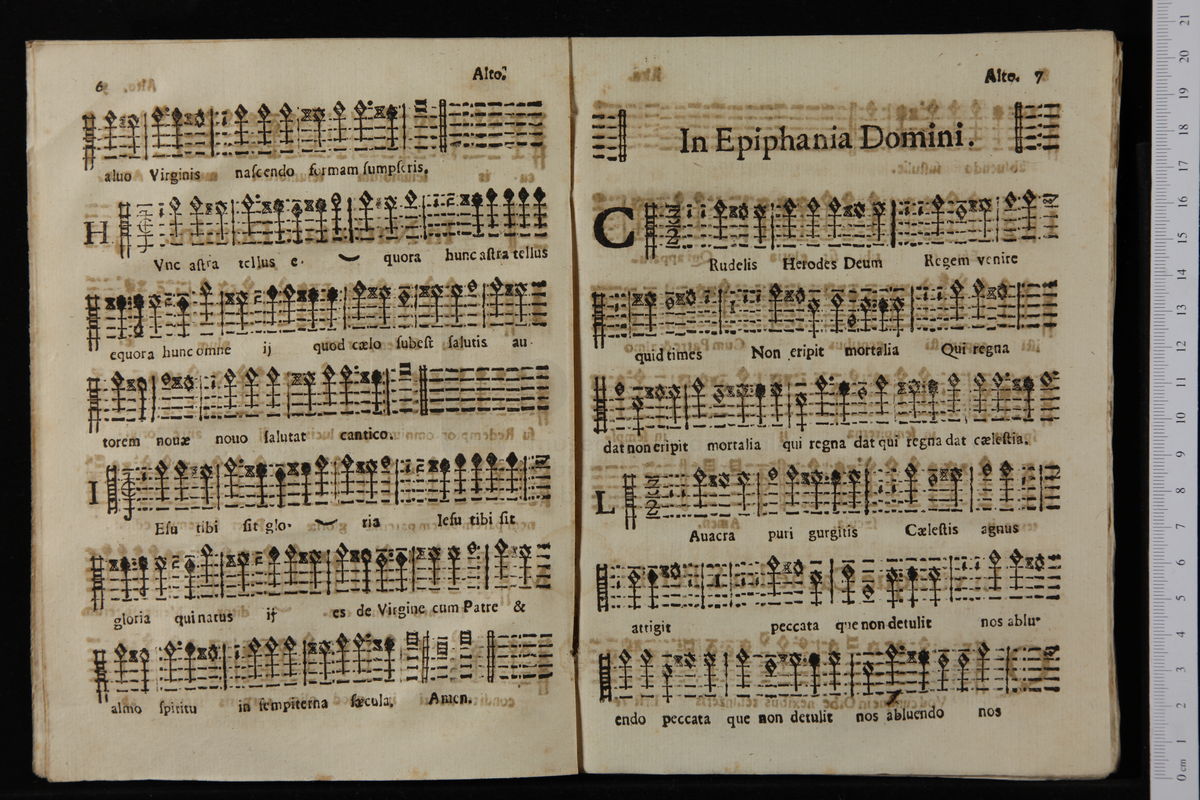 6
Alto.
aluo Virginis naſcendo formam ſumpſeris.
H
Vnc aſtra tellus e- quora hunc aſtra tellus
equora hunc omne ij quod cælo ſubeſt ſalutis au-
torem nouæ nouo ſalutat cantico.
I
Eſu tibi ſit glo- ria Ieſu tibi ſit
gloria qui natus ij es de Virgine cum Patre &
almo ſpiritu in ſempiterna ſæcula. Amen.
Alto. 7
In Epiphania Domini.
C
Rudelis Herodes Deum Regem venire
quid times Non eripit mortalia Qui regna
dat non eripit mortalia qui regna dat qui regna dat cæleſtia.
L
Auacra puri gurgitis Cæleſtis agnus
attigit peccata que non detulit nos ablu-
endo peccata que non detulit nos abluendo nos
21
20
19
18
17
16
15
14
13
12
11
10
9
8
7
6
5
4
3
2
1
0 cm